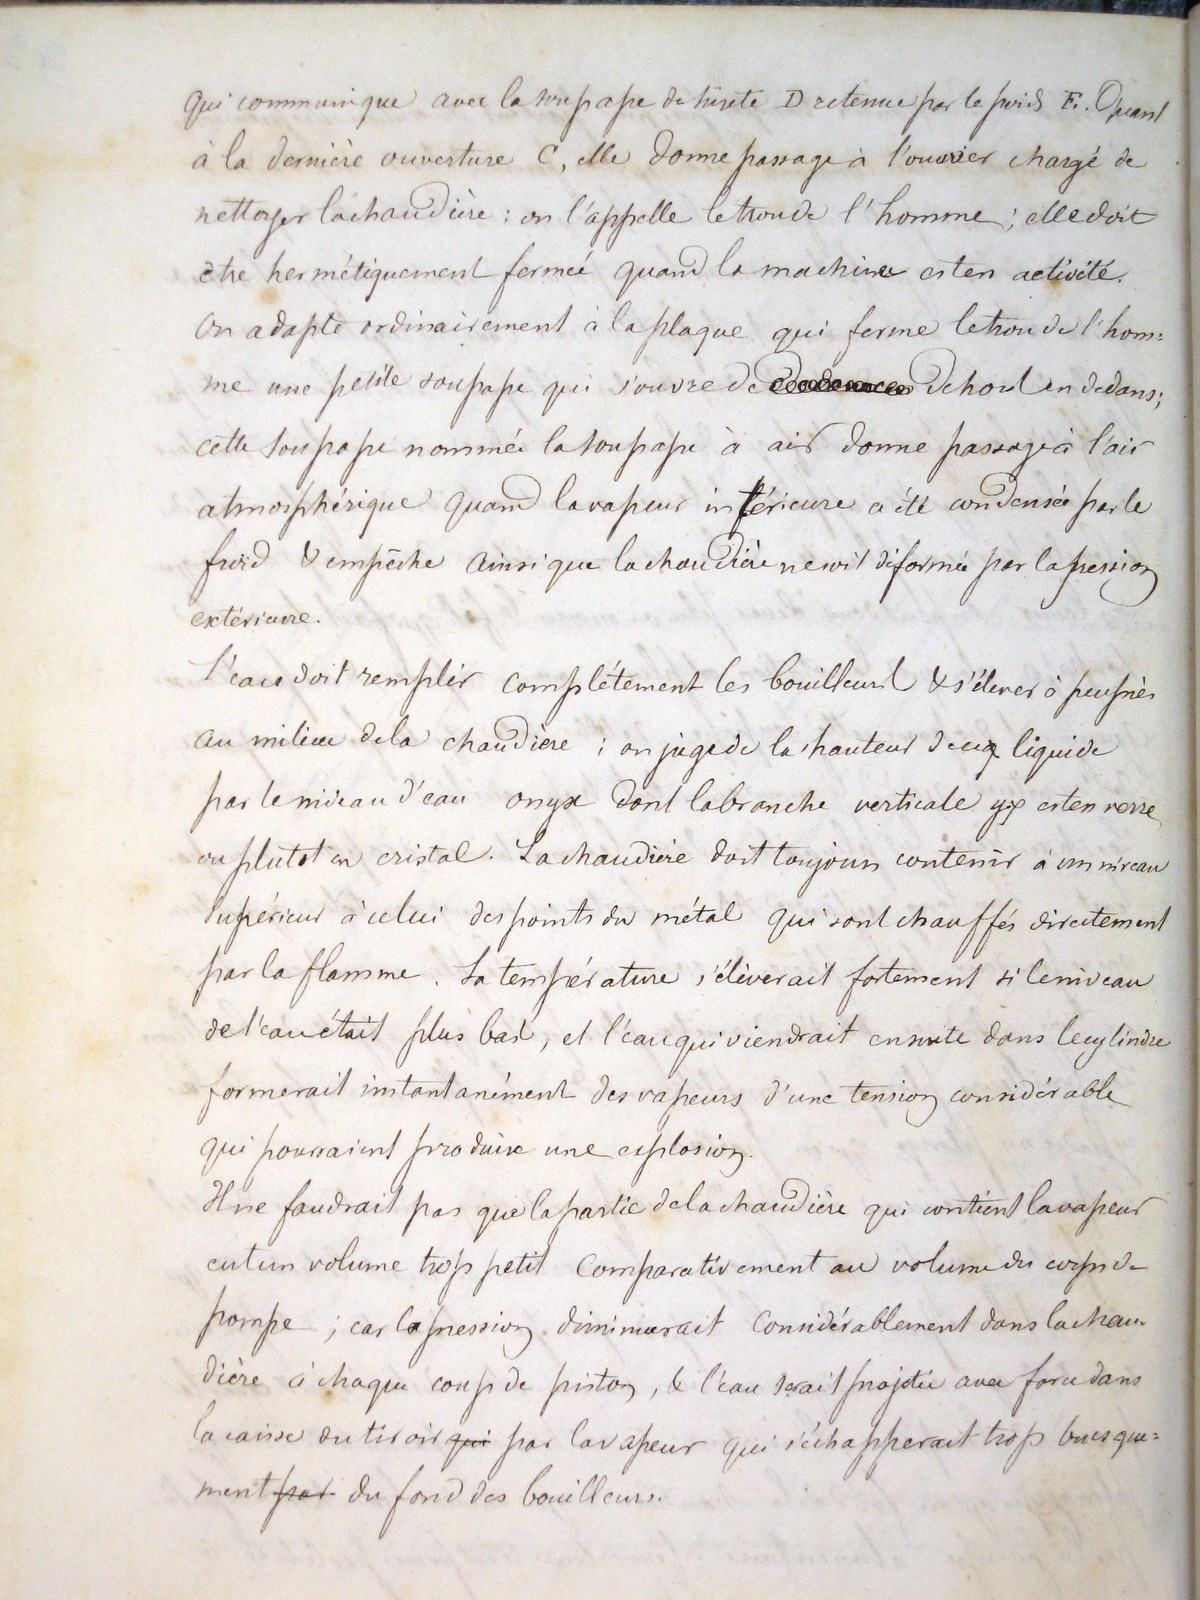 qui communique avec la soupape de sûreté D retenue par le poids E. Quant
à la dernière ouverture C, elle donne passage à l'ouvrier chargé de
nettoyer la chaudière : on l'appelle le trou de l'homme ; elle doit
être hermétiquement fermée quand la machine est en activité.
On adapte ordinairement à la plaque qui ferme le trou de l'hom=
me une petite soupape qui s'ouvre de dehors en dedans ;
cette soupape nommée la soupape à air donne passage à l'air
atmosphérique quand la vapeur intérieure a été condensée par le
froid & empêche ainsi que la chaudière ne soit déformée par la pression
extérieure.
L'eau doit remplir complétement les bouilleurs & s'élever à peu près
au milieu de la chaudière ; on juge de la hauteur de ce liquide
par le niveau d'eau onyx dont la branche verticale yx est en verre
ou plutôt en cristal. La chaudière doit toujours contenir à un niveau
supérieur à celui des points du métal qui sont chauffés directement
par la flamme. La température s'élèverait fortement si le niveau
de l'eau était plus bas, et l'eau qui viendrait ensuite dans le cylindre
formerait instantanément des vapeurs d'une tension considérable
qui pourraient produire une explosion.
Il ne faudrait pas que la partie de la chaudière qui contient la vapeur
eut un volume trop petit comparativement au volume du corps de
pompe ; car la pression diminuerait considérablement dans la chau-
dière à chaque coup de piston, & l'eau serait projetée avec force dans
la caisse du tiroir qui par la vapeur qui s'échapperait trop brusque=
ment par du fond des bouilleurs.